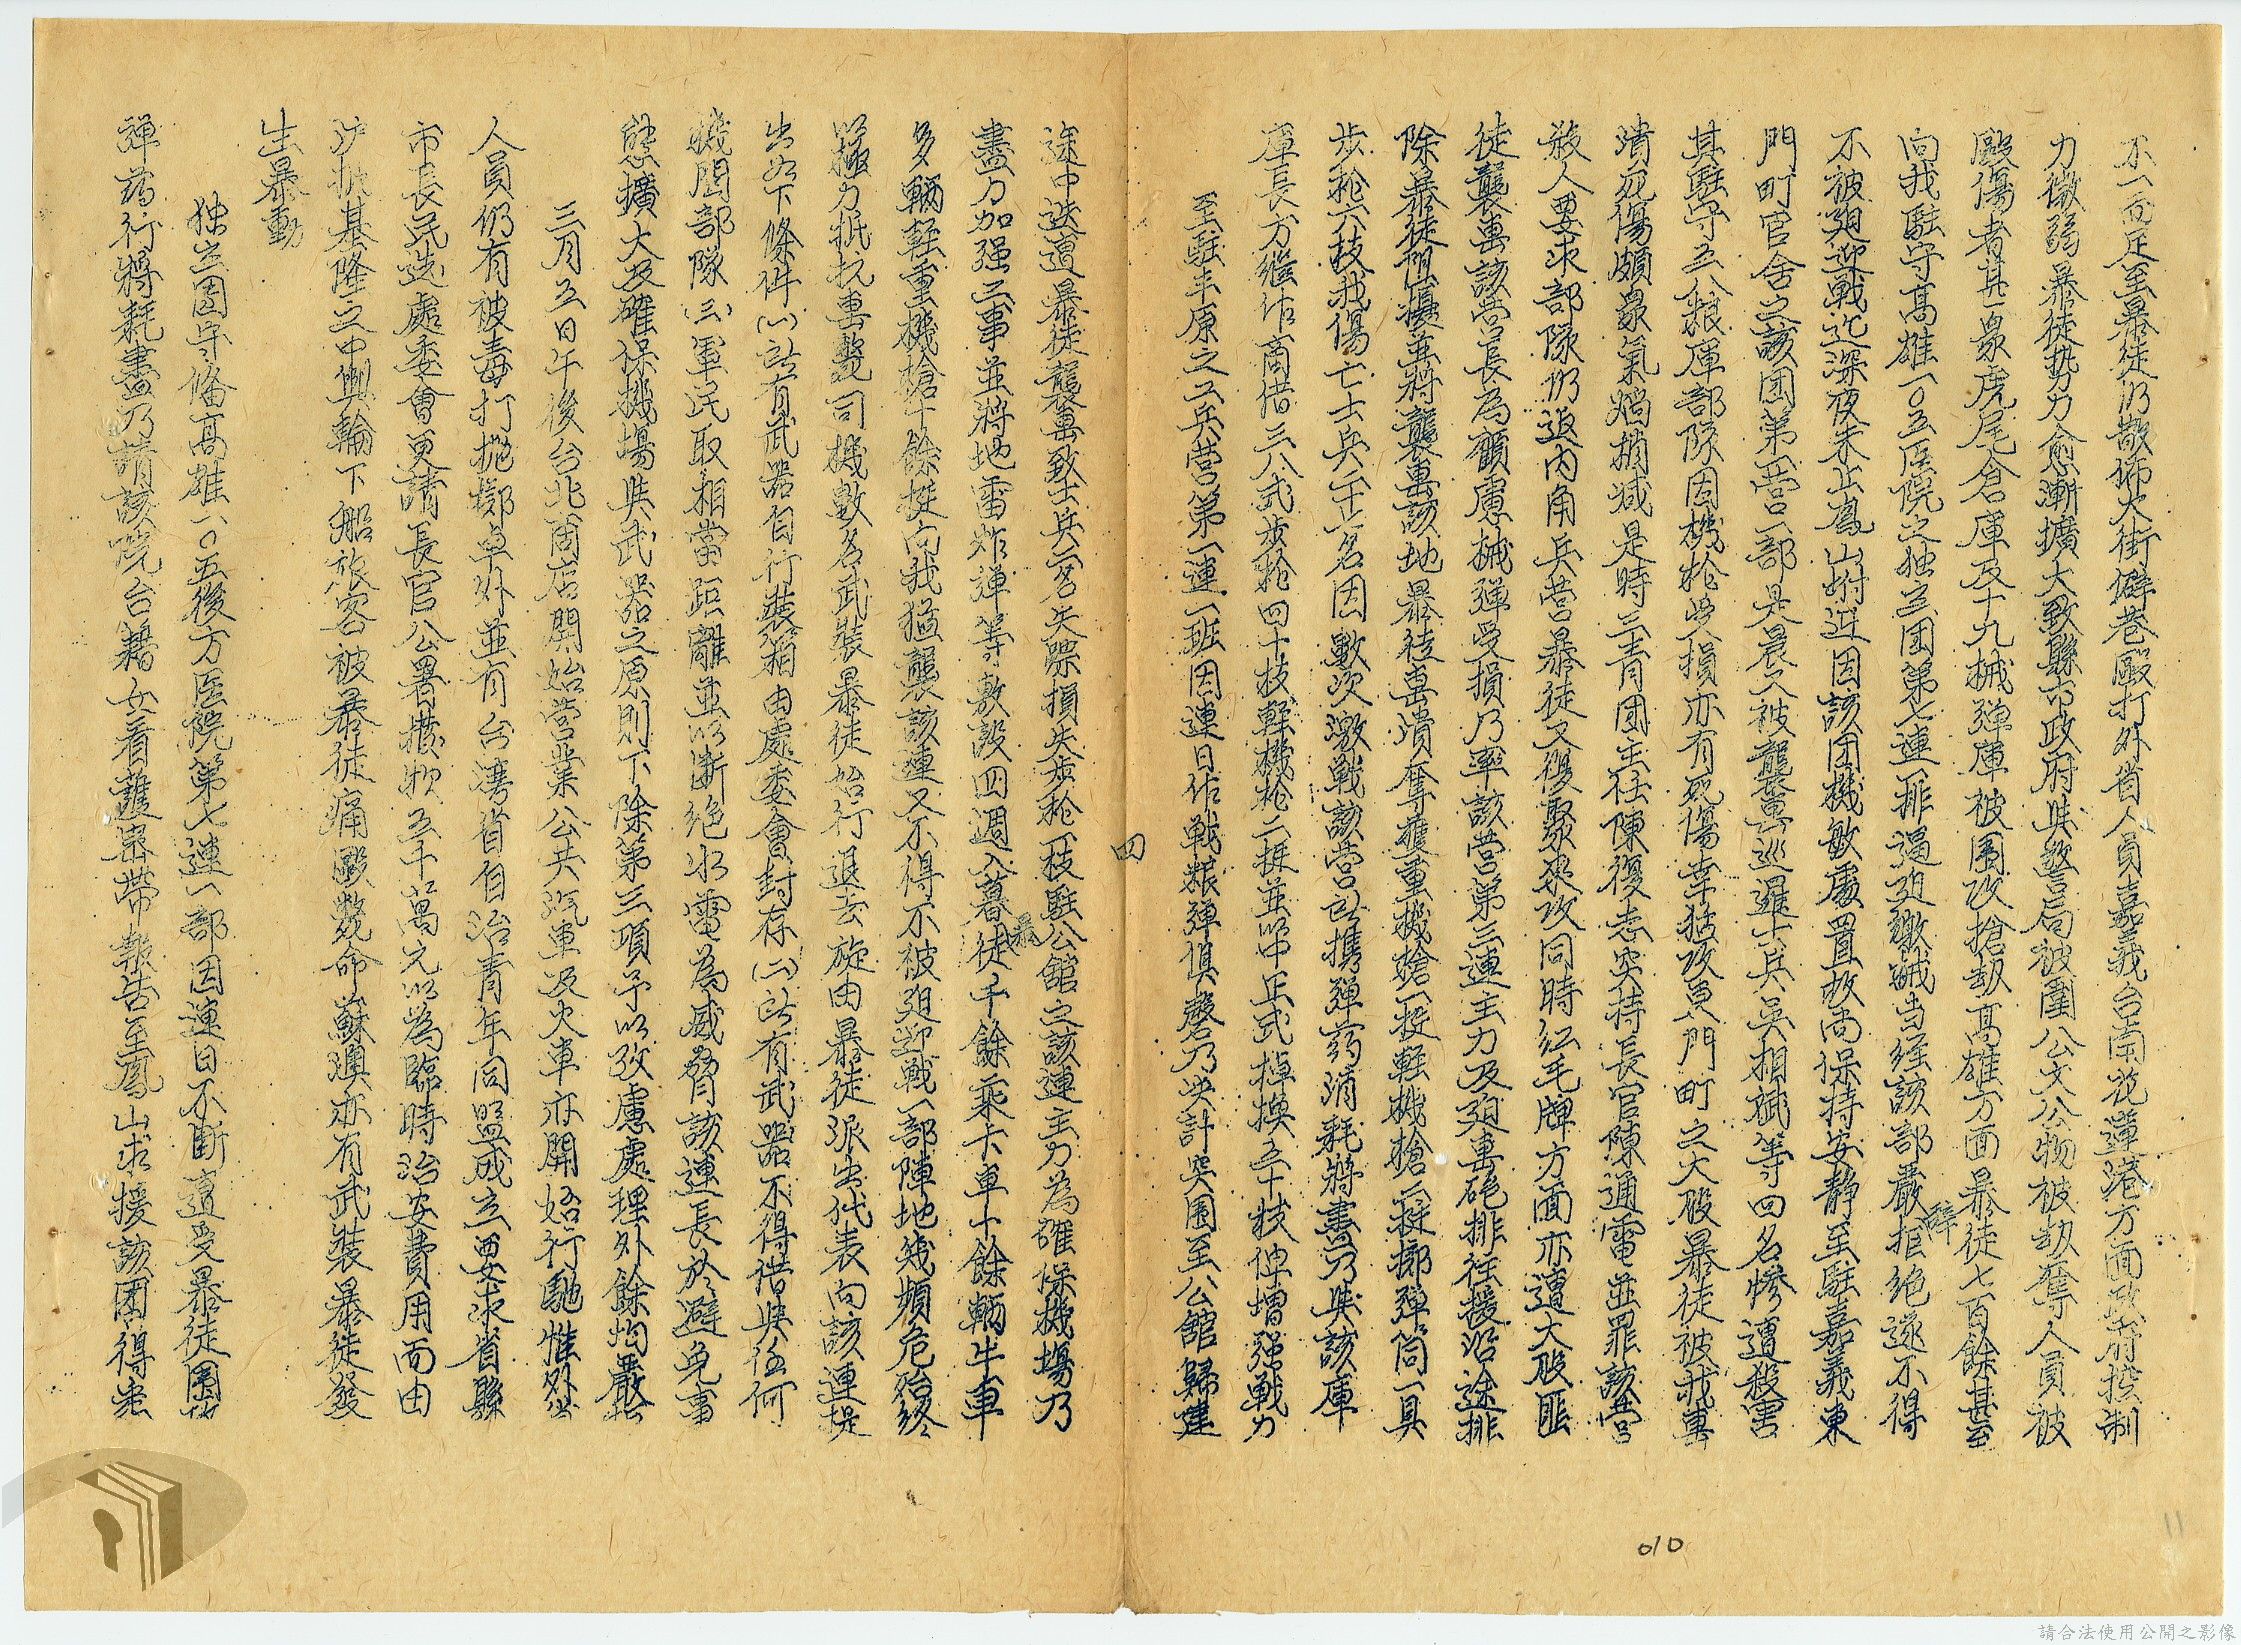 不一而足至暴徒仍散佈大街僻巷毆打外省人員嘉義台南花蓮港方面政府控制
力微弱暴徒势力愈漸擴大致縣市政府與警局被圍公文公物被劫奪人員被
毆傷者甚眾虎尾倉庫及十九械弹庫被围攻搶劫髙雄方面暴徒七百餘甚至
向我駐守髙雄一〇五医院之独立团第七連一排逼廹繳械当经該部嚴辞拒绝遂不得
不被廹迎戰迄深夜未止鳳山附近因該团機敏處置故尚保持安靜至駐嘉義東
門町官舍之該团第一营一部是晨又被襲擊巡邏士兵吳相斌等四名惨遭殺害
其駐守五八粮庫部隊因機枪受損亦有死傷幸猛攻東門町之大股暴徒被我擊
潰死傷頗眾氣焰稍减是時三青团主任陳復志突持長官陳通電並罪該营
殺人要求部隊仍返内角兵营暴徒又復聚衆攻同時紅毛牌方面亦遭大股匪
徒襲擊該营長為顧慮械弹受損乃率該营第三連主力及廹擊砲排往援沿途排
除暴徒阻擾並將襲擊該地暴徒擊潰奪獲重機槍一挺軽機槍一挺擲弹筒一具
步枪六枝我傷亡士兵二十一名因數次激戦該营所携弹药消耗將盡乃與該庫
庫長方继作商借三八式步枪四十枝軽機枪二挺並以中正式掉換五十枝俾增强戰力
至駐丰原之工兵营第一連一班因連日作戦粮弹俱罄乃決計突围至公館歸建
四
途中迭遭暴徒襲擊致士兵一名失踪損失步枪一枝駐公館之該連主力為確保機場乃
盡力加强工事並將地雷炸弹等敷設四週入暮暴徒千餘乘卡車十餘輛牛車
多輛軽重機槍十餘挺向我猛襲該連又不得不被廹迎戰一部陣地幾頻危殆终
以極力抵抗擊斃司機數名武裝暴徒始行退去旋由暴徒派出代表向該連提
出如下條件㈠所有武器自行裝箱由處委會封存㈡所有武器不得借與任何
機関部隊㈢軍民取相當距離並以断绝水電為威脅該連長於避免事
態擴大及確保機場與武器之原則下除第三項予以攷慮處理外餘均嚴拒
三月五日午後台北商店開始营業公共汽車及火車亦開始行馳惟外省
人員仍有被毒打拋擲車外並有台湾省自治青年同盟成立要求省縣
市長民选處委會更請長官公署撥款五十萬元以為臨時治安費用而由
沪抵基隆之中興輪下船旅客被暴徒痛毆斃命蘇澳亦有武裝暴徒發
生暴動
独立团守俻髙雄一〇五後方医院第七連一部因連日不断遭受暴徒圍攻
弹药行將耗盡乃請該院台籍女看護密带報告至鳳山求援該團得悉
010
11
請合法使用公開之影像